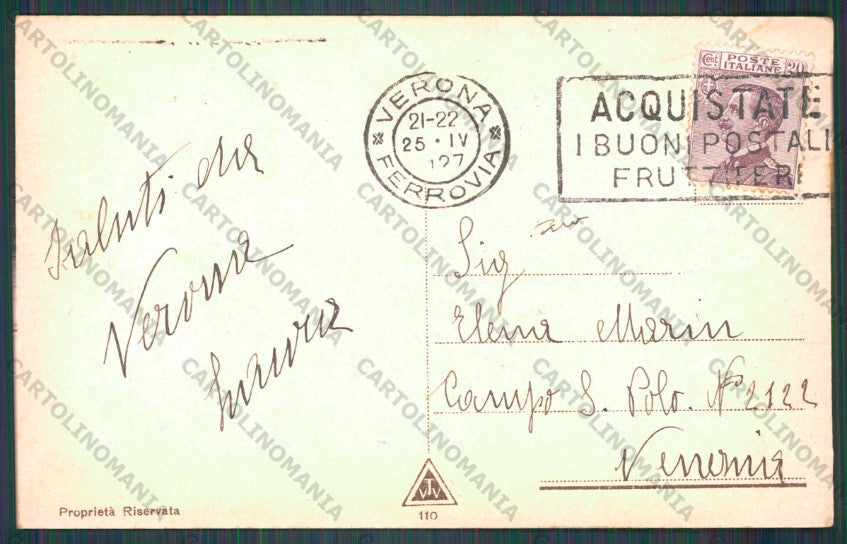 VERONA
21-22
25 · IV
127
FERROVIA
ACQUISTATE
I BUONI POSTALI
FRUTTIFERI
Cent. POSTE ITALIANE 20
Saluti da
Verona
Sig
Elena Marin
Campo S. Polo. N° 2122
Venezia
Proprietà Riservata
TVV
110
CARTOLINOMANIA